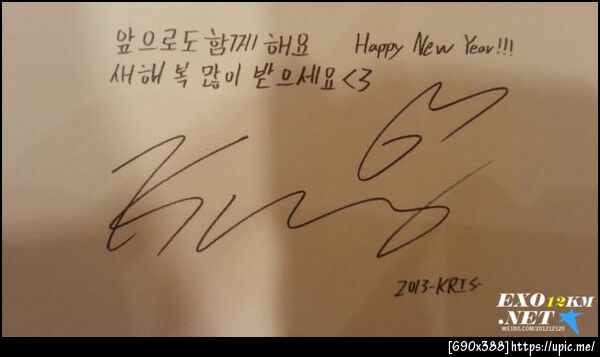 앞으로도 함께 해요 Happy New Year!!!
새해 복 많이 받으세요 <3
2013-KRIS-
EXO12KM
.NET
WEIBO.COM/201212120
[690x388]https://upic.me/